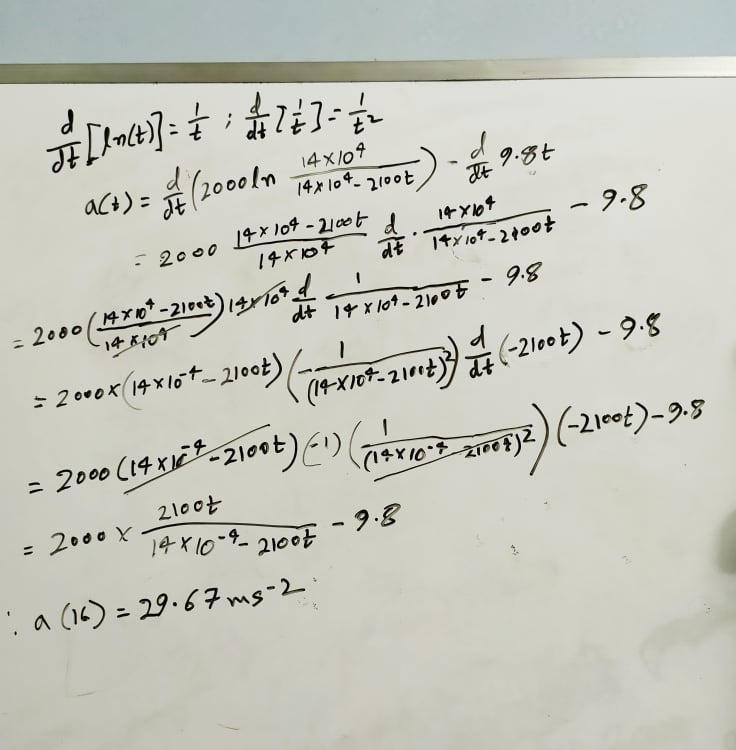 d/dt [ln(t)] = 1/t ; d/dt [1/t] = 1/t²
a(t) = d/dt (2000 ln 14×10⁴/(14×10⁴ - 2100t)) - d/dt 9.8t
= 2000 (14×10⁴ - 2100t)/(14×10⁴) d/dt · 14×10⁴/(14×10⁴ - 2100t) - 9.8
= 2000 ((14×10⁴ - 2100t)/(14×10⁴)) 14×10⁴ d/dt 1/(14×10⁴ - 2100t) - 9.8
= 2000 × (14×10⁻⁴ - 2100t) (-1/(14×10⁴ - 2100t)²) d/dt (-2100t) - 9.8
= 2000 (14×10⁻⁴ - 2100t) (-1) (1/(14×10⁻⁴ - 2100t)²) (-2100t) - 9.8
= 2000 × 2100t/(14×10⁻⁴ - 2100t) - 9.8
∴ a(16) = 29.67 ms⁻²